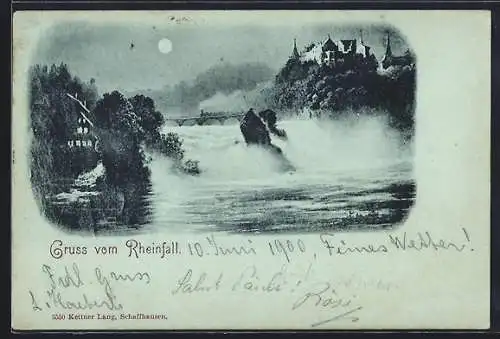 Gruss vom Rheinfall. 10. Juni 1900, Feines Wetter!
Frdl. Gruss
Salut
Rosi
3550 Kettner Lang, Schaffhausen.